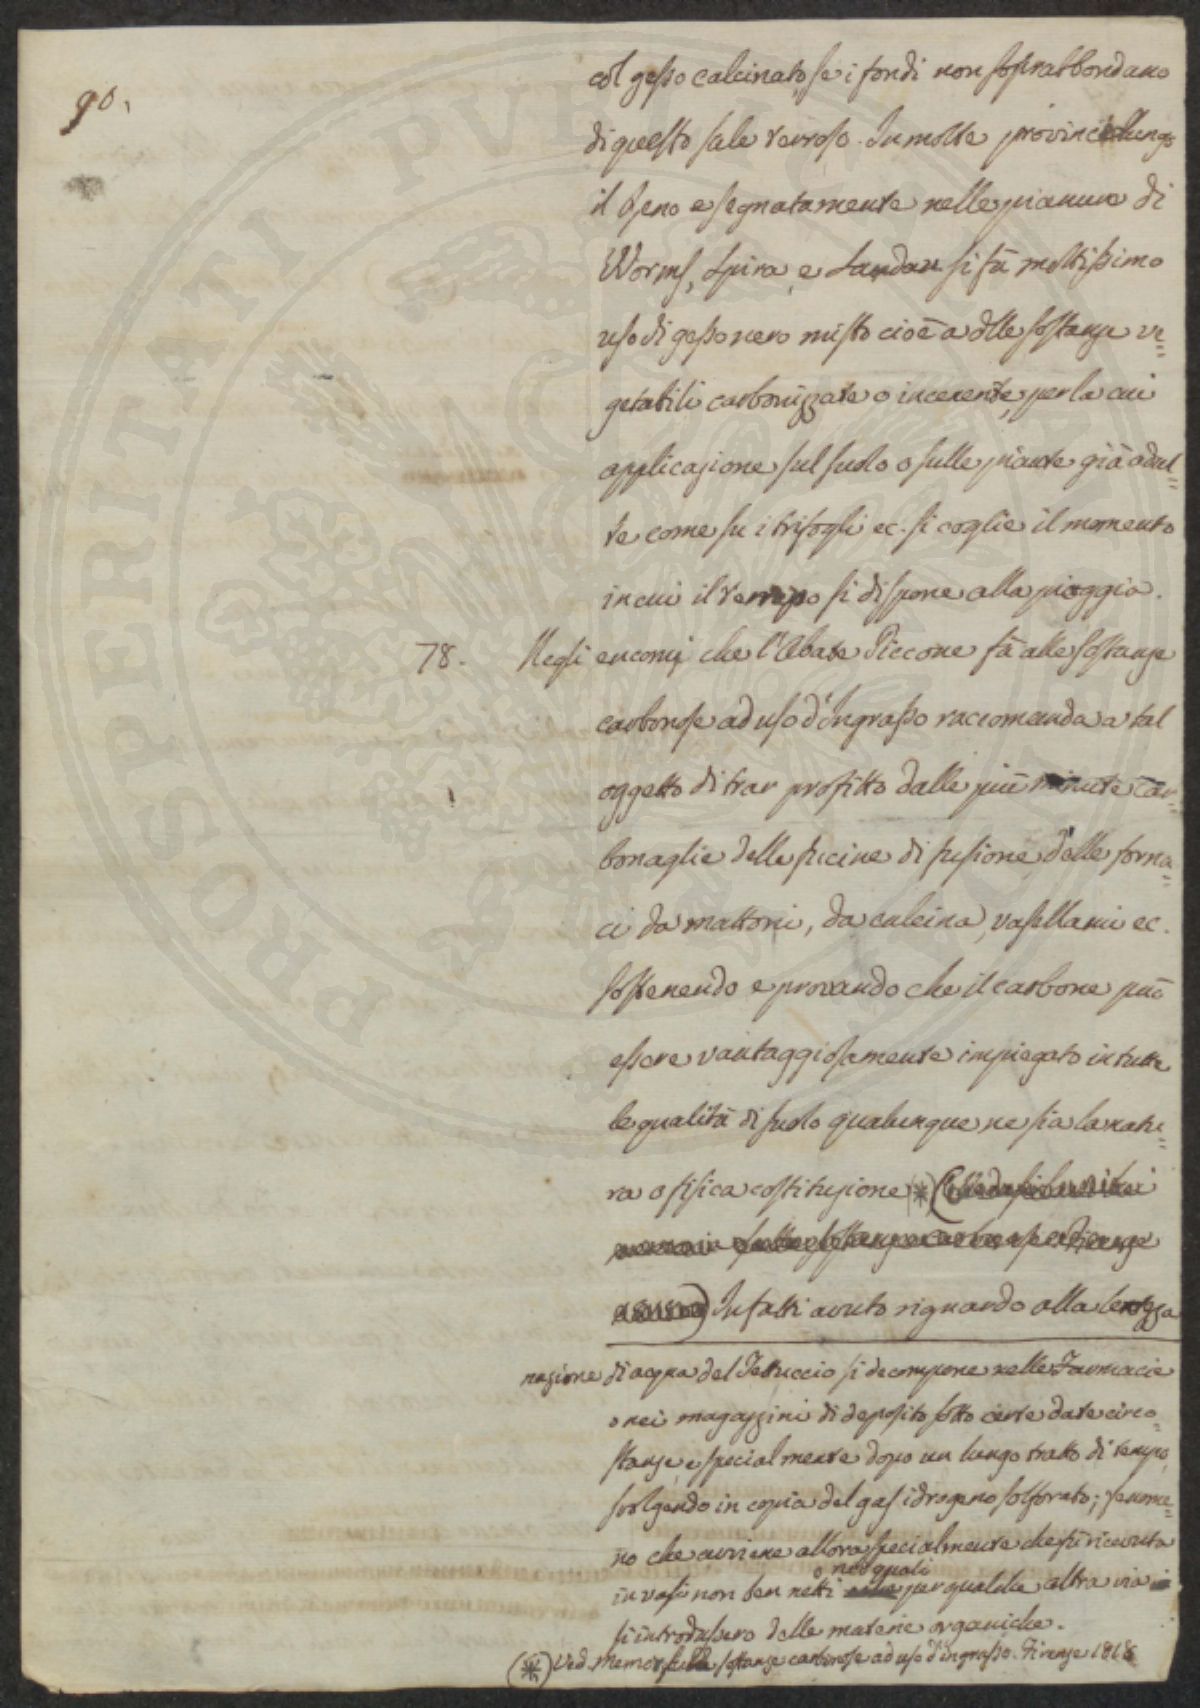 90.
col gesso calcinato, se i fondi non soprabbondano
di questo sale terroso. In molte provincie lungo
il Reno e segnatamente nelle pianure di
Worms, Spira, e Landau si fà moltissimo
uso di gesso nero misto cioè a delle sostanze ve=
getabili carbonizzate o incenerite, per la cui
applicazione sul suolo o sulle piante già adul=
te come su i trifogli ec. si coglie il momento
in cui il tempo si dispone alla pioggia.
78. Negli encomj che l'Abate Piccone fà alle sostanze
carbonose ad uso d'Ingrasso raccomanda a tal
oggetto di trar profitto dalle più minute car=
bonaglie delle fucine di fusione, delle forna=
ci da mattoni, da calcina, vasellami ec.
sostenendo e provando che il carbone può
essere vantaggiosamente impiegato in tutte
le qualità di suolo qualunque ne sia la natu=
ra o fisica costituzione (*)
Infatti avuto riguardo alla lentezza
nazione di acqua del Tettuccio si decompone nelle Farmacie
o nei magazzini di deposito sotto certe date circo=
stanze, e specialmente dopo un lungo tratto di tempo,
svolgendo in copia del gas idrogeno solforato; fenome=
no che avviene allora specialmente che fù ricevuta
in vasi non ben netti o nei quali per qualche altra via
si introdussero delle materie organiche.
(*) Ved. Memor. sulle sostanze carbonose ad uso d'ingrasso. Firenze 1818
PROSPERITATI PVBLICAE